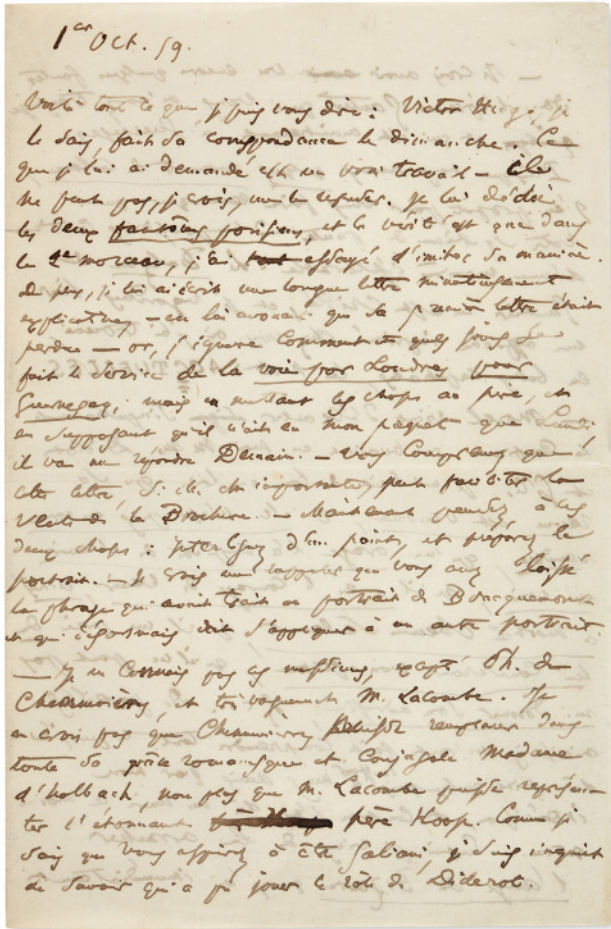 1er Oct. 59.
Voilà tout ce que je puis vous dire : Victor Hugo, je
le sais, fait sa correspondance le dimanche. Ce
que je lui ai demandé est un vrai travail – il
ne peut pas, je crois, me le refuser. Je lui dédie
les deux fantômes parisiens, et la vérité est que dans
le 2e morceau, j'ai tout essayé d'imiter sa manière.
De plus, je lui ai écrit une longue lettre minutieusement
explicative, – en lui avouant que sa première lettre était
perdue – or, j'ignore comment et quels jours se
fait le service de la voie par Londres pour
Guernesey ; mais en mettant les choses au pire, et
en supposant qu'il n'ait eu mon paquet que Lundi,
il va me répondre Demain. – Vous comprenez que
cette lettre, si elle est importante, peut faciliter la
vente de la Brochure. – Maintenant pensez à ces
deux choses : interlignez d'un point, et préparez le
portrait. – Je crois me rappeler que vous avez laissé
la phrase qui avait trait au portrait de Bracquemond
et qui désormais doit s'appliquer à un autre portrait.
– Je ne connais pas ces messieurs, excepté Ph. de
Chennevières, et très vaguement M. Lacombe. Je
ne crois pas que Chennevières puisse remplacer dans
toute sa grâce romanesque et conjugale Madame
d'Holbach, non plus que M. Lacombe puisse représen-
ter l'étonnant père Hoop. Comme je
sais que vous aspirez à être Galiani, je suis inquiet
de savoir qui a pu jouer le rôle de Diderot.